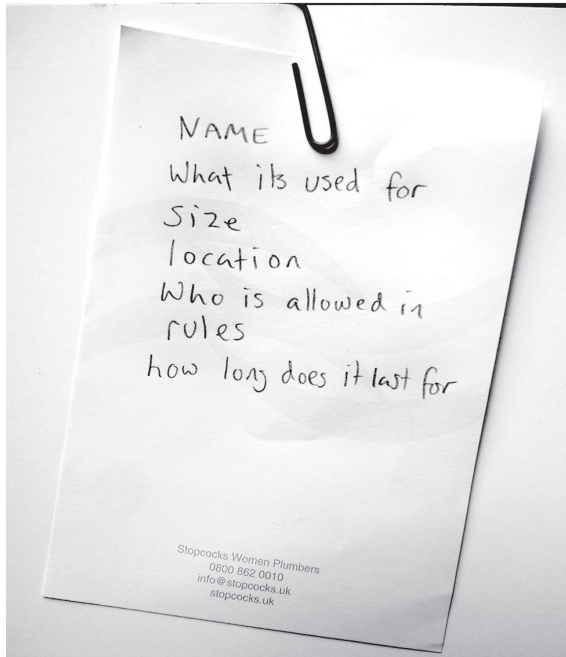 NAME
What its used for
size
location
Who is allowed in
rules
how long does it last for
Stopcocks Women Plumbers
0800 862 0010
info@stopcocks.uk
stopcocks.uk